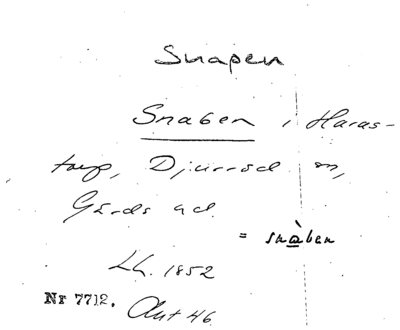 Snapen
Snaben i Haras-
torp, Djurröd sn,
Gärds hd.
= snàben
Lh. 1852
Nr 7712. Ant 46